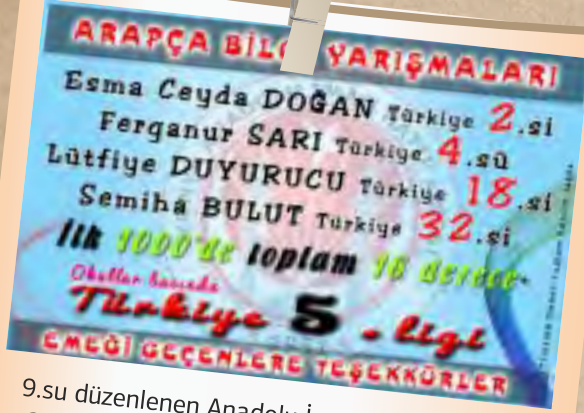 ARAPÇA BİLGİ YARIŞMALARI
Esma Ceyda DOĞAN Türkiye 2.si
Ferganur SARI Türkiye 4.sü
Lütfiye DUYURUCU Türkiye 18.si
Semiha BULUT Türkiye 32.si
İlk 1000'de toplam 16 derece
Okullar bazında
Türkiye 5 - ligi
EMEĞİ GEÇENLERE TEŞEKKÜRLER
9.su düzenlenen Anadolu